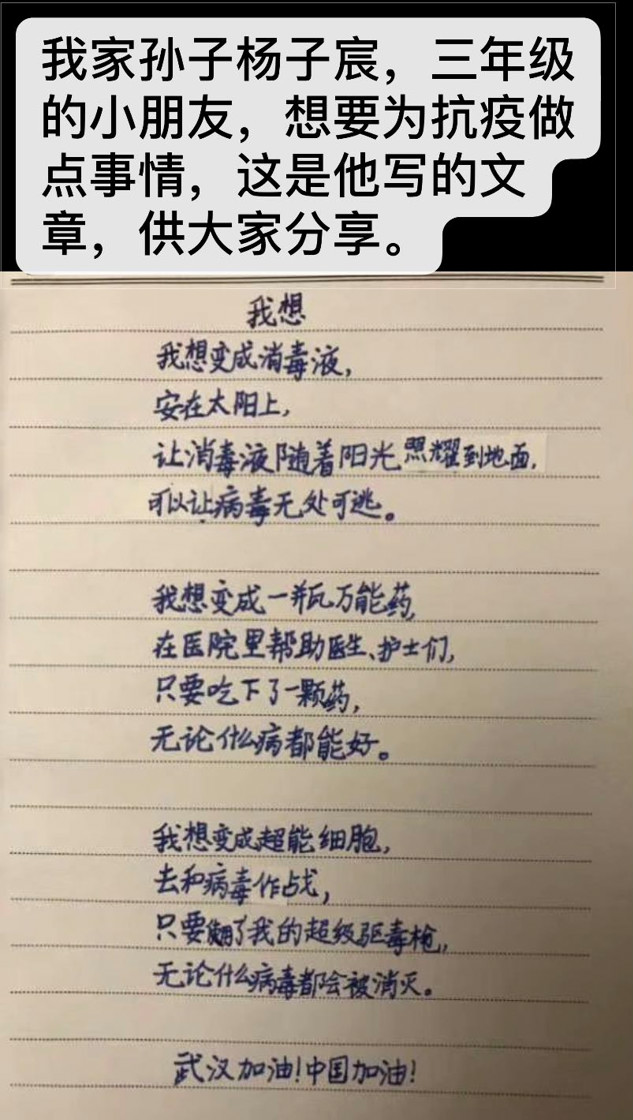 我家孙子杨子宸，三年级
的小朋友，想要为抗疫做
点事情，这是他写的文
章，供大家分享。
我想
我想变成消毒液，
安在太阳上，
让消毒液随着阳光照耀到地面，
可以让病毒无处可逃。
我想变成一瓶万能药，
在医院里帮助医生、护士们，
只要吃下了一颗药，
无论什么病都能好。
我想变成超能细胞，
去和病毒作战，
只要用了我的超级驱毒枪，
无论什么病毒都会被消灭。
武汉加油！中国加油！